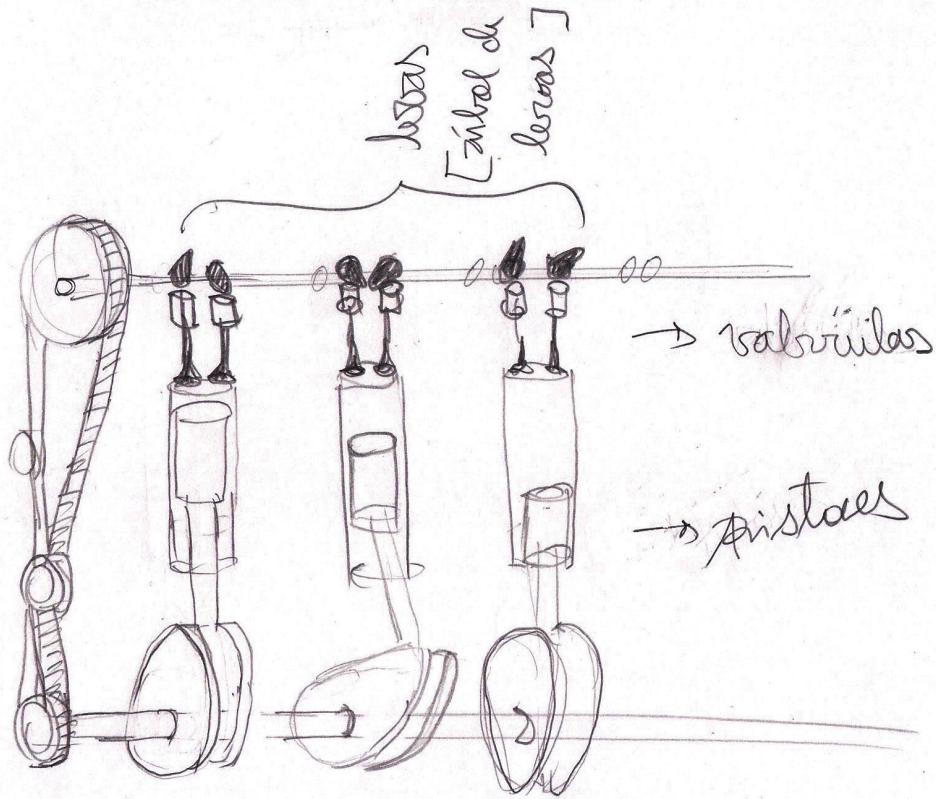 levas
[árbol de
levas]
→ valvüilas
→ pistaes